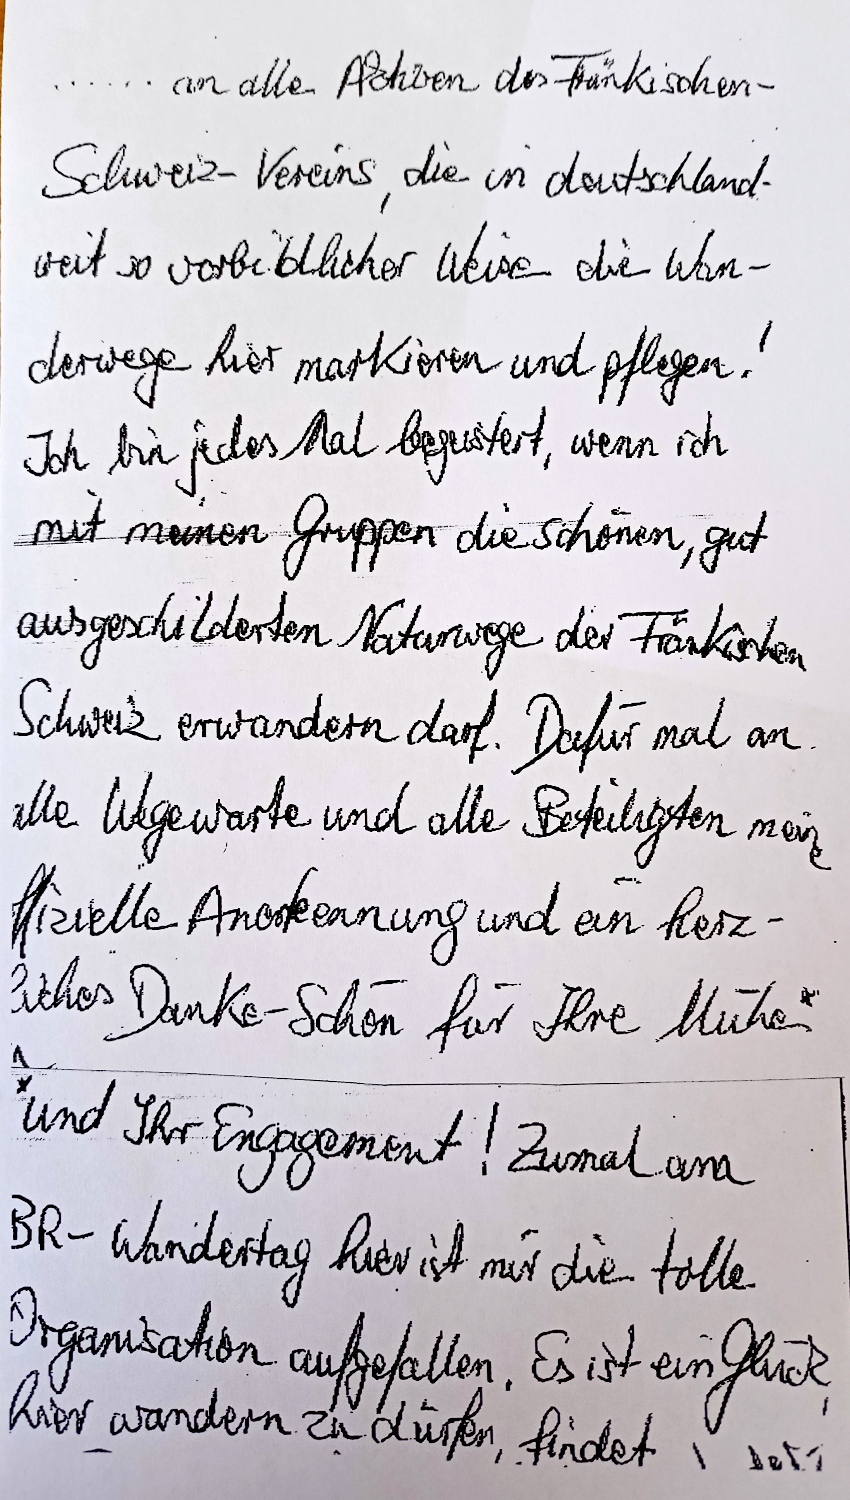 ...... an alle Aktiven des Fränkischen-
Schweiz-Vereins, die in deutschland-
weit so vorbildlicher Weise die Wan-
derwege hier markieren und pflegen!
Ich bin jedes Mal begeistert, wenn ich
mit meinen Gruppen die schönen, gut
ausgeschilderten Naturwege der Fränkischen
Schweiz erwandern darf. Dafür mal an
alle Wegewarte und alle Beteiligten meine
ffizielle Anerkennung und ein herz-
liches Danke-Schön für Ihre Mühe*
*und Ihr Engagement! Zumal am
BR-Wandertag hier ist mir die tolle
Organisation aufgefallen. Es ist ein Glück,
hier wandern zu dürfen, findet